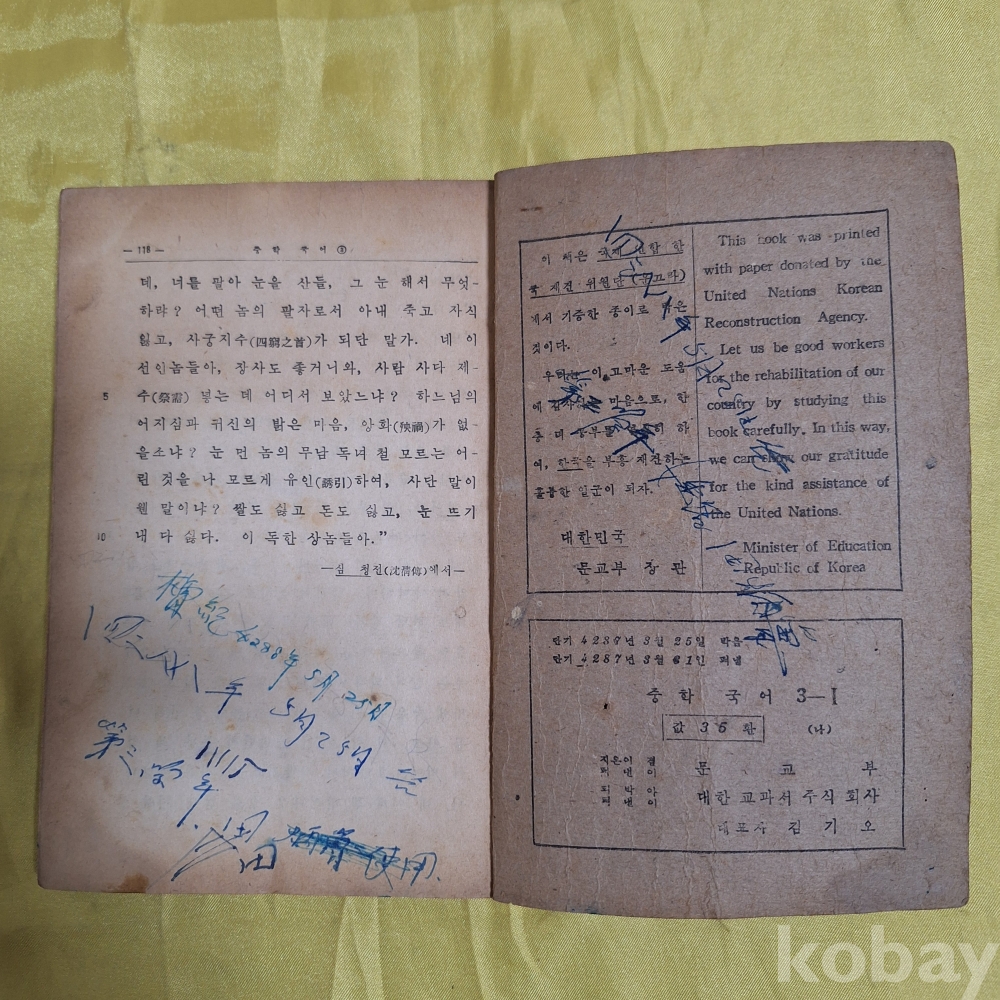 — 118 —
중 학 국 어 ③
데, 너를 팔아 눈을 산들, 그 눈 해서 무엇-
하랴? 어떤 놈의 팔자로서 아내 죽고 자식
잃고, 사궁지수(四窮之首)가 되단 말가. 네 이
선인놈들아, 장사도 좋거니와, 사람 사다 제-
5 수(祭需) 넣는 데 어디서 보았느냐? 하느님의
어지심과 귀신의 밝은 마음, 앙화(殃禍)가 없-
을소냐? 눈 먼 놈의 무남 독녀 철 모르는 어-
린 것을 나 모르게 유인(誘引)하여, 사단 말이
웬 말이냐? 쌀도 싫고 돈도 싫고, 눈 뜨기
10 내 다 싫다. 이 독한 상놈들아.”
—심 청전(沈淸傳)에서—
檀紀 4288年 5月 25日
年 5月 25日
第三
이 책은 국제 연합 한
국 재건 위원단(운끄라)
에서 기증한 종이로 박은
것이다.
우리는 이 고마운 도움
에 감사하는 마음으로, 한
층 더 공부를 하
여, 한국을 부흥 재건하는
훌륭한 일군이 되자.
대한민국
문교부 장관
This book was printed
with paper donated by the
United Nations Korean
Reconstruction Agency.
Let us be good workers
for the rehabilitation of our
country by studying this
book carefully. In this way,
we can show our gratitude
for the kind assistance of
the United Nations.
Minister of Education
Republic of Korea
단기 4287년 3월 25일 박음
단기 4287년 3월 31일 펴냄
중 학 국 어 3—Ⅰ
값 36 환 (나)
지은이 겸
펴낸이 문 교 부
대한 교과서 주식 회사
대표자 김 기 오
kobay